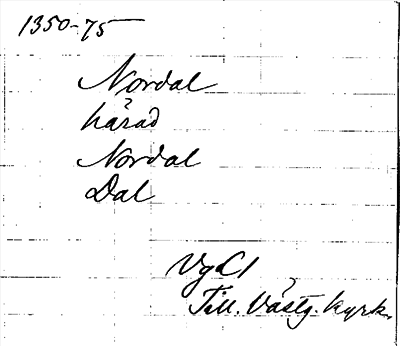 1350-75
Nordal
härad
Nordal
Dal
VgL I
Till. Västg. kyrk.